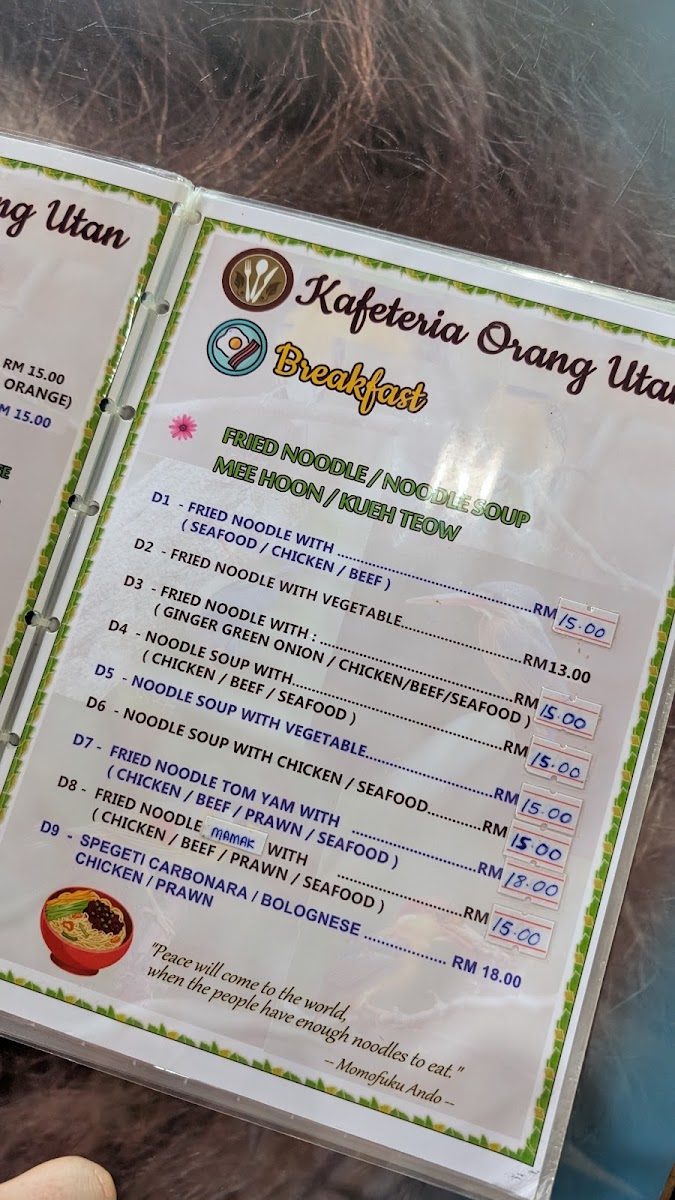 ng Utan
RM 15.00
ORANGE)
M 15.00
Kafeteria Orang Utan
Breakfast
FRIED NOODLE / NOODLE SOUP
MEE HOON / KUEH TEOW
D1 - FRIED NOODLE WITH ........................................RM 15.00
( SEAFOOD / CHICKEN / BEEF )
D2 - FRIED NOODLE WITH VEGETABLE.........................RM13.00
D3 - FRIED NOODLE WITH :........................................RM 15.00
( GINGER GREEN ONION / CHICKEN/BEEF/SEAFOOD )
D4 - NOODLE SOUP WITH...........................................RM 15.00
( CHICKEN / BEEF / SEAFOOD )
D5 - NOODLE SOUP WITH VEGETABLE..........................RM 15.00
D6 - NOODLE SOUP WITH CHICKEN / SEAFOOD...........RM 15.00
D7 - FRIED NOODLE TOM YAM WITH ..........................RM 18.00
( CHICKEN / BEEF / PRAWN / SEAFOOD )
D8 - FRIED NOODLE MAMAK WITH ..........................RM 15.00
( CHICKEN / BEEF / PRAWN / SEAFOOD )
D9 - SPEGETI CARBONARA / BOLOGNESE .................. RM 18.00
CHICKEN / PRAWN
"Peace will come to the world,
when the people have enough noodles to eat."
-- Momofuku Ando --